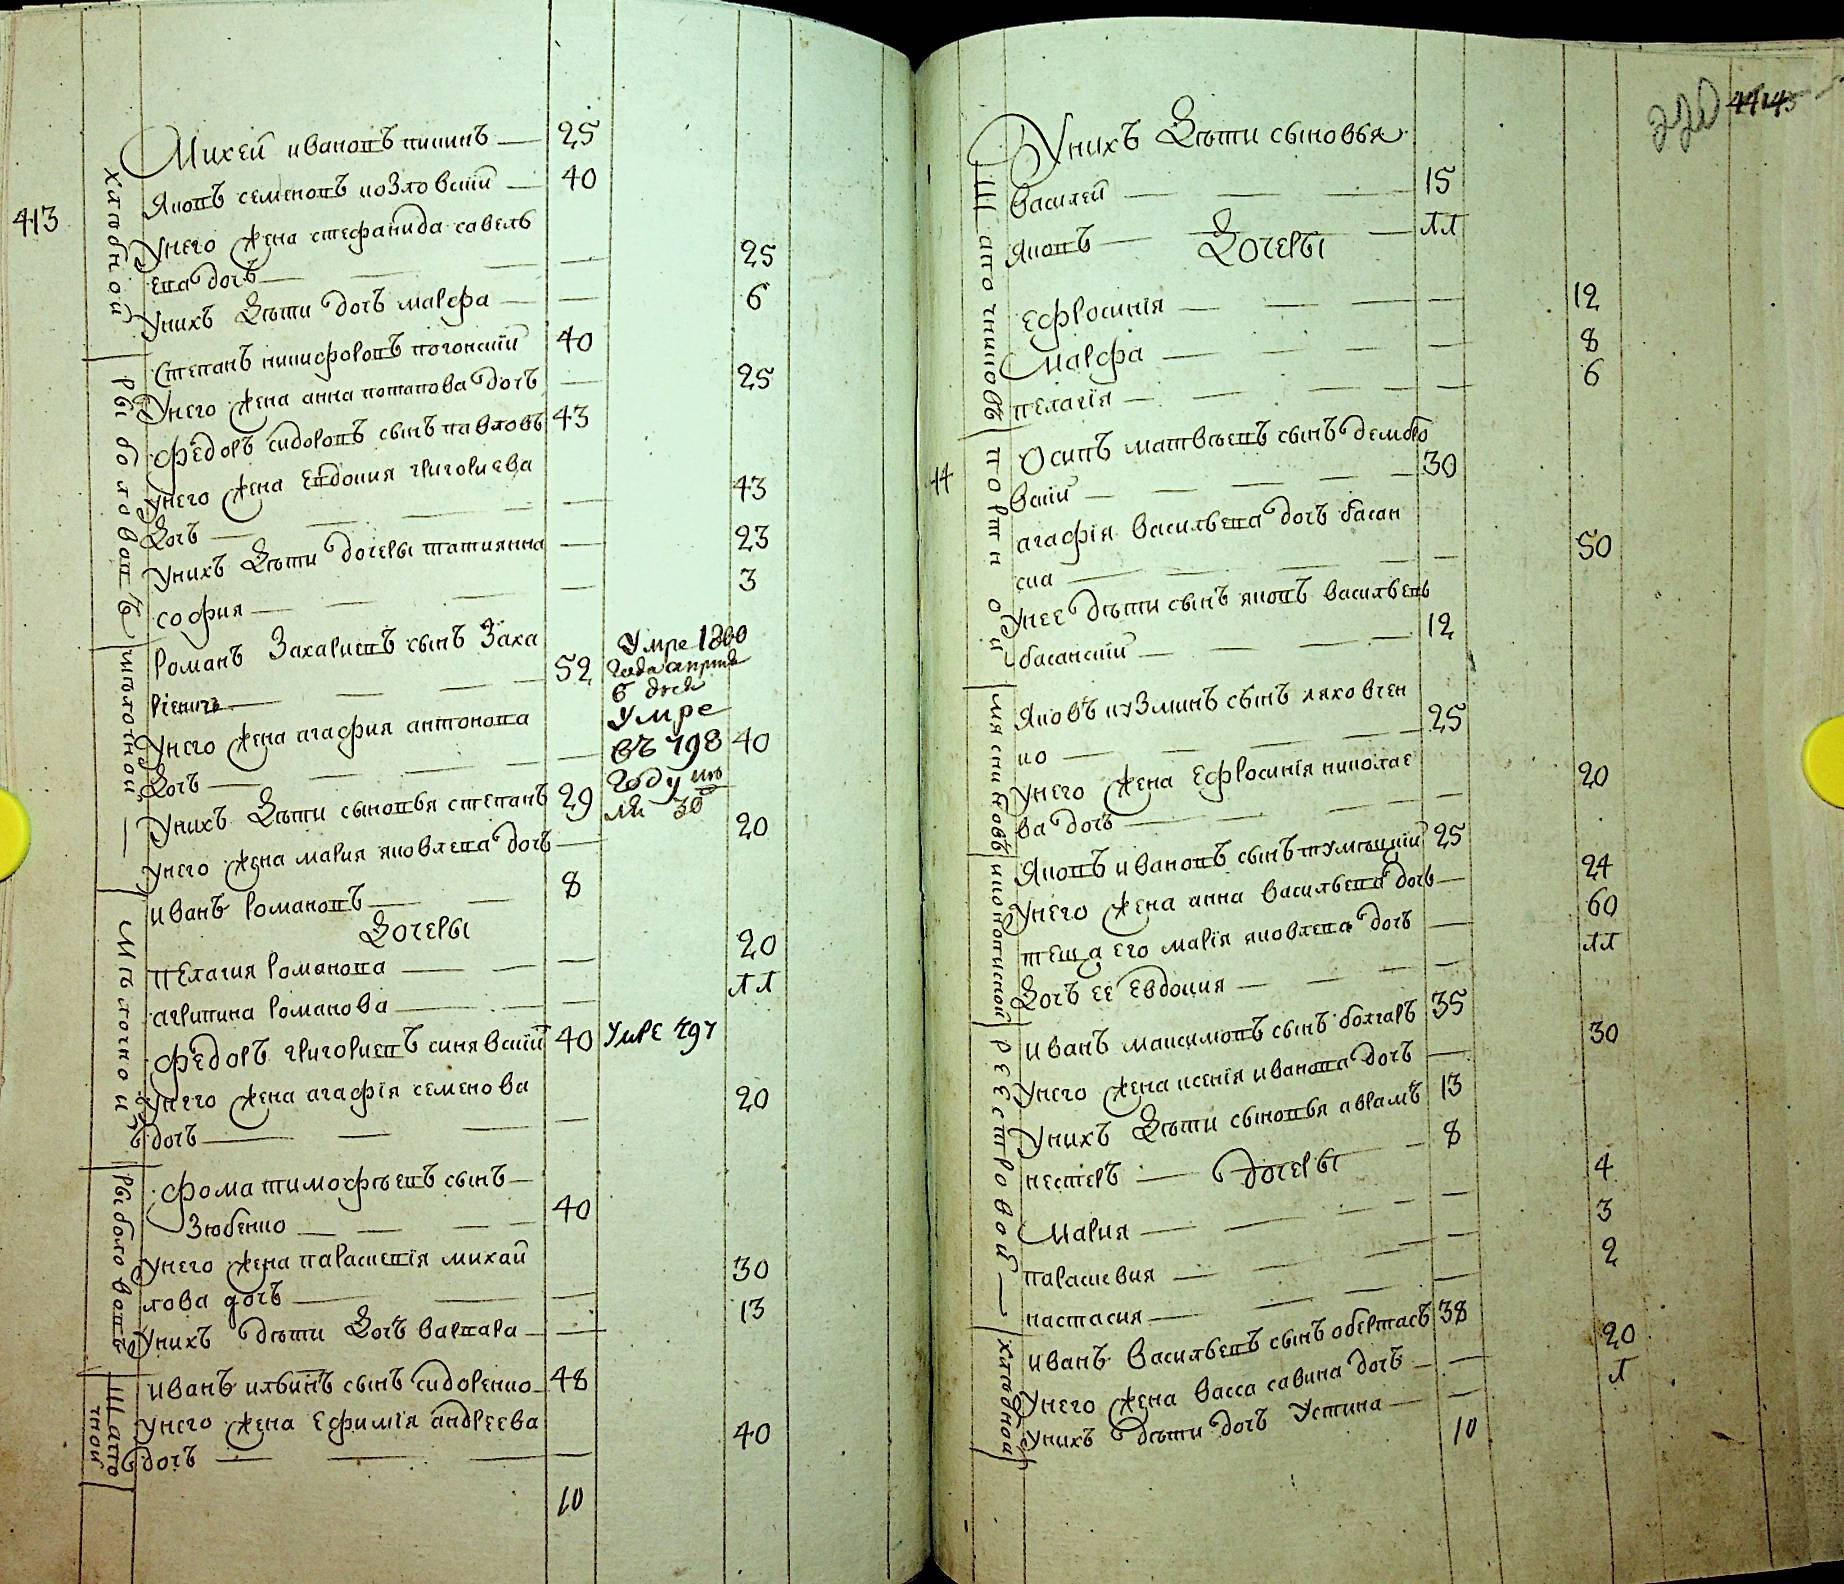 413
Михей ивановъ пининъ — 25
Яковъ семеновъ козловский — 40
Унего жена стефанида савель
ева дочь — 25
Унихъ дѣти дочь марфа — 6
Степанъ никифоровъ погонский 40
Унего жена анна потапова дочь — 25
Федоръ сидоровъ сынъ павловъ 43
Унего жена евдокия григориева
дочь — 43
Унихъ дѣти дочеры татиянна — 23
софия — 3
Романъ Захариевъ сынъ Заха
риевичъ — 52
Умре 1800
года априля
6 дня
Унего жена агафия антонова
дочь — 40
Умре
въ 798
году ию
ля 30
Унихъ дѣти сыновья степанъ 29
Унего жена мария яковлева дочь — 20
иванъ романовъ — 8
Дочеры
пелагия романова — 20
агрипина романова — лл
Федоръ григориевъ синявский 40 умре 797
Унего жена агафія семенова
дочь — 20
Фома тимофѣевъ сынъ —
Зюбенко — 40
Унего жена параскевія михай
лова дочь — 30
Унихъ дѣти дочь варвара — 13
иванъ ильинъ сынъ сидоренко — 48
Унего жена Ефимія андреева
дочь — 40
10
хлѣбной
рыболовацъ
шчолочной
мѣлочной
рыболовацъ
Шапо
чной
44 45
Унихъ дѣти сыновья
Василей — 15
Яковъ — лл
Дочеры
ефросинія — 12
Марфа — 8
пелагія — 6
44
Осипъ матвѣевъ сынъ дембо
вский — 30
агафія васильева дочь басан
ска — 50
Унее дѣти сынъ яковъ васильевъ
басанский — 12
Яковъ кузминъ сынъ ляховчен
ко — 25
Унего жена ефросинія николае
ва дочь — 20
Яковъ ивановъ сынъ тумский 25
Унего жена анна васильева дочь — 24
теща его марія яковлева дочь — 60
Дочъ ее евдокия — лл
иванъ максимовъ сынъ болгаръ 35
Унего жена ксенія иванова дочь — 30
Унихъ дѣти сыновья аврамъ 13
нестеръ — 8
дочеры
Мария — 4
параскевия — 3
настасия — 2
иванъ васильевъ сынъ обертасъ 38
Унего жена васса савина дочь — 20
Унихъ дѣти дочь Устина — л
10
Шапочниковъ
портной
мясниковъ
иконописной
реестровой —
хлѣбной